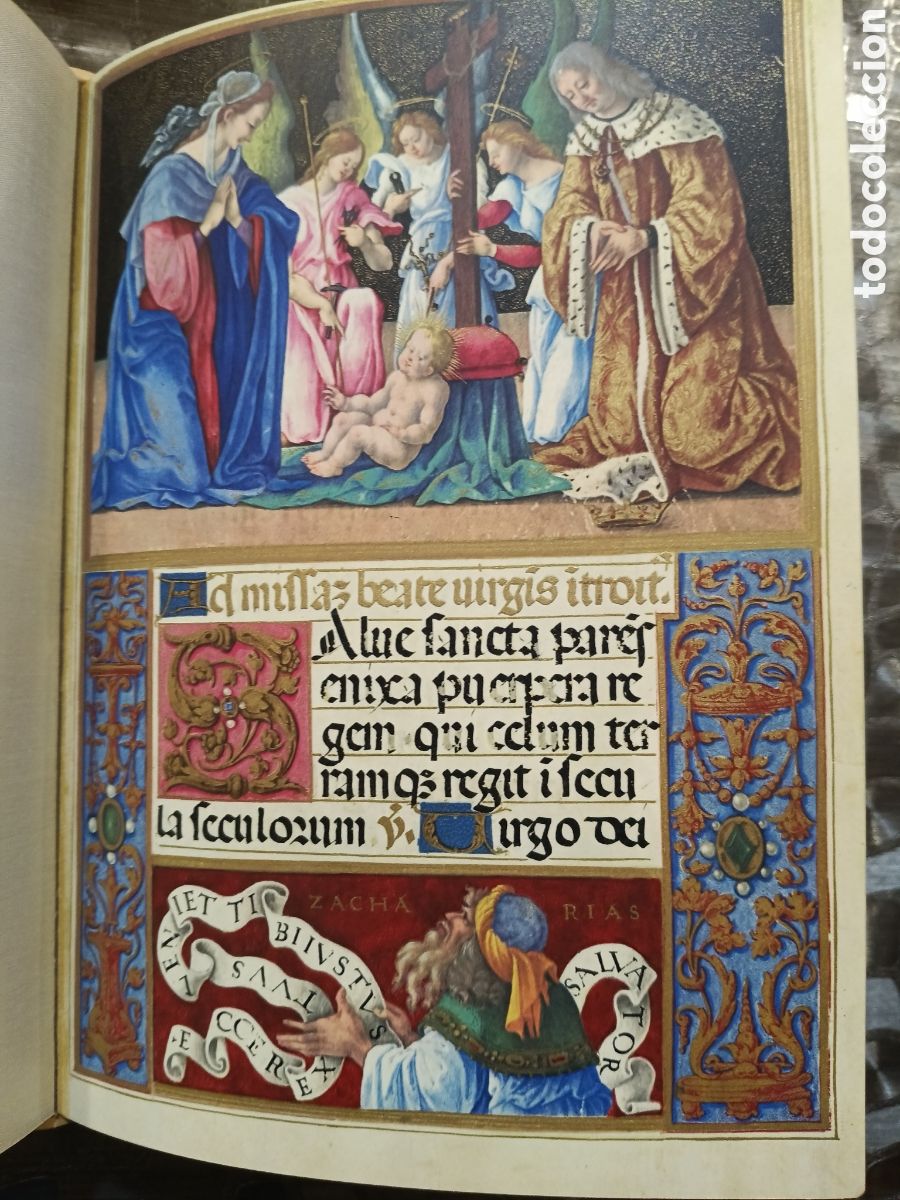 todocoleccion
Ad missaz beate uirgis itroit.
Salue sancta parēs
enixa puerpera re
gem qui celum ter
ramqz regit i secu
la seculorum v. Virgo dei
ZACHA RIAS
ECCE REX
TVVS
VENIET TI
BI IVSTVS
SALVATOR